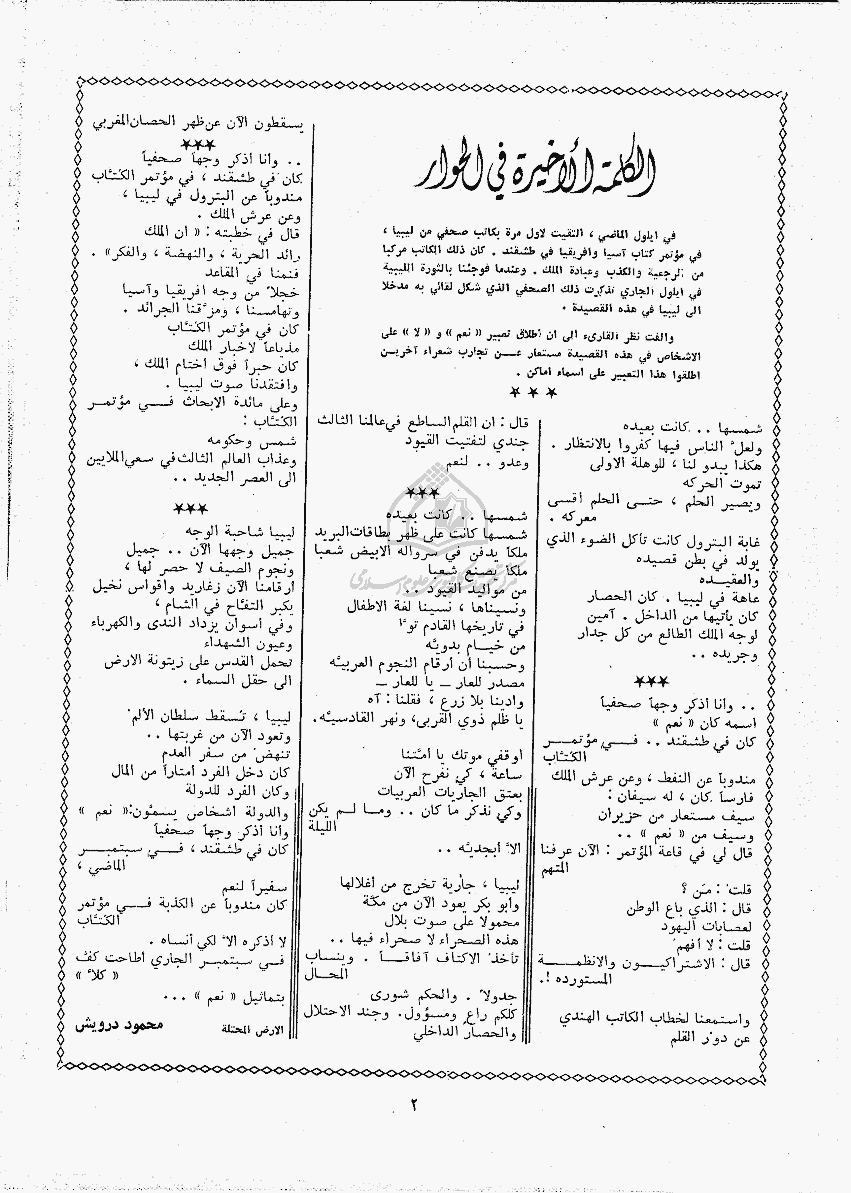 الكلمة الأخيرة في الحوار
في ايلول الماضي ، التقيت لاول مرة بكاتب صحفي من ليبيا ،
في مؤتمر كتاب آسيا وافريقيا في طشقند . كان ذلك الكاتب مركبا
من الرجعية والكذب وعبادة الملك . وعندما فوجئنا بالثورة الليبية
في ايلول الجاري تذكرت ذلك الصحفي الذي شكل لقائي به مدخلا
الى ليبيا في هذه القصيدة .
والفت نظر القارىء الى ان اطلاق تعبير « نعم » و « لا » على
الاشخاص في هذه القصيدة مستعار عـــن تجارب شعراء آخريـن
اطلقوا هذا التعبير على اسماء اماكن .
★ ★ ★
شمسها . . كانت بعيده
ولعل الناس فيها كفروا بالانتظار .
هكذا يبدو لنا ، للوهلة الاولى
تموت الحركه
ويصير الحلم ، حتـــى الحلم أقسى
معركه .
غابة البترول كانت تأكل الضوء الذي
يولد في بطن قصيده
والعقيـــده
عاهة في ليبيا . كان الحصار
كان يأتيها من الداخل . آمين
لوجه الملك الطالع من كل جدار
وجريده . .
★★★
. . وأنا أذكر وجهاً صحفياً
اسمه كان « نعم »
كان في طشقند . . فـــي مؤتمـــر
الكتّاب
مندوباً عن النفط ، وعن عرش الملك
فارساً كان ، له سيفان :
سيف مستعار من حزيران
وسيف من « نعم » . .
قال لي في قاعة المؤتمر : الآن عرفنا
المتهم
قلت : مَن ؟
قال : الذي باع الوطن
لعصابات اليهود
قلت : لا أفهم
قال : الاشتراكيــــون والانظمــــة
المستورده !.
واستمعنا لخطاب الكاتب الهندي
عن دور القلم
قال : ان القلم الساطع في عالمنا الثالث
جندي لتفتيت القيود
وعدو . . لنعم
★★★
شمسها . . كانت بعيده
شمسها كانت على ظهر بطاقات البريد
ملكا يدفن في سرواله الابيض شعبا
ملكا يصنع شعبا
من مواليد القيود . .
ونسيناها ، نسينا لغة الاطفال
في تاريخها القادم توّا
من خيـــام بدويّه
وحسبنا أن أرقام النجوم العربيّه
مصدر للعار ــ يا للعار ــ
وادينا بلا زرع ، فقلنا : آه
يا ظلم ذوي القربى، ونهر القادسيّه .
أوقفي موتك يا أمّتنا
ساعة ، كي نفرح الآن
بعتق الجاريات العربيات
وكي نذكر ما كان . . ومـا لـم يكن
الليلة
الاّ أبجديّه . .
ليبيا ، جارية تخرج من أغلالها
وأبو بكر يعود الآن من مكّة
محمولا على صوت بلال
هذه الصحراء لا صحراء فيها . .
تأخذ الاكتاف آفاقـــاً . وينساب
المحال
جدولا . والحكم شورى
كلكم راع ومسؤول. وجند الاحتلال
والحصار الداخلي
يسقطون الآن عن ظهر الحصان المغربي
★★★
. . وأنا أذكر وجهاً صحفياً
كان في طشقند ، في مؤتمر الكتّاب
مندوباً عن البترول في ليبيا ،
وعن عرش الملك .
قال في خطبته : « ان الملك
رائد الحرية ، والنهضة ، والفكر» .
فنمنا في المقاعد
خجلا من وجه افريقيا وآسيا
وتهامسنا ، ومزّقنا الجرائد .
كان في مؤتمر الكتّاب
مذياعاً لاخبار الملك
كان حبراً فوق أختام الملك ،
وافتقدنا صوت ليبيا .
وعلى مائدة الابحاث فـــي مؤتمـر
الكتّاب :
شمس وحكومه
وعذاب العالم الثالث في سعي الملايين
الى العصر الجديد . .
★★★
ليبيا شاحبة الوجه
جميل وجهها الآن . . جميل
ونجوم الصيف لا حصر لها ،
أرقامنا الآن زغاريد وأقواس نخيل
يكبر التفاح في الشام ،
وفي أسوان يزداد الندى والكهرباء
وعيون الشهداء
تحمل القدس على زيتونة الارض
الى حقل السماء .
ليبيا ، تسقط سلطان الألم
وتعود الآن من غربتها . .
تنهض من سفر العدم
كان دخل الفرد أمتاراً من المال
وكان الفرد للدولة
والدولة أشخاص يسمّون: « نعم »
وأنا أذكر وجهاً صحفياً
كان في طشقند ، فـــي سبتمبـــر
الماضي ،
سفيراً لنعم
كان مندوباً عن الكذبة فـــي مؤتمر
الكتّاب
لا أذكره الاّ لكي أنساه .
فـــي سبتمبـــر الجاري أطاحت كف
« كلاّ »
بتماثيل « نعم » . . .
الارض المحتلة محمود درويش
٢